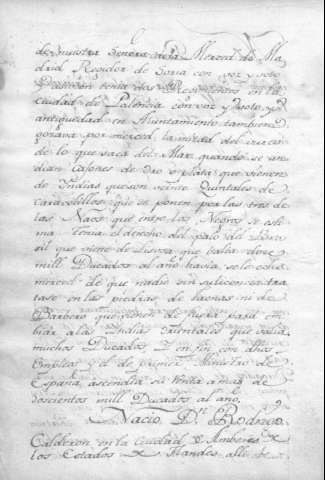 de nuestra Senora de la Merced de Ma
drid Regidor de Soria con voz y voto
tenia otros Regimientos en la
Ciudad de Palencia con voz y voto, y
antiguedad en Aiuntamiento tambien
gozava por merced, la mitad del
de lo que saca del Mar quando se
dian Galones de Oro o plata que vienen
de Indias que son veinte Quintales de
que se ponen por las tres de
las Naos que entre los Negros se esti
ma tenia el derecho del palo del Bra
sil que viene de Lisboa que valia doce
mill Ducados al año havia
merced de que nadie sin su licencia tra
tase en las piedras de ni de
Barbero que vienen de para em
biar a las Indias orientales que valia
muchos Ducados I en fin con dhos
Empleos y el de primer Ministro de
España ascendia su renta a mas de
doscientos mill Ducados al año.
Nacio Dn Rodrigo
Calderon en la Ciudad de Amberes
los Estados de Flandes alli de